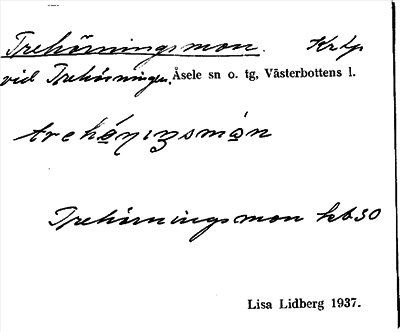 Trehörningsmon. Krtp
vid Trehörningen. Åsele sn o. tg, Västerbottens l.
Trehörningsmon kb 50
Lisa Lidberg 1937.